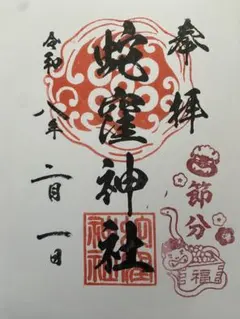 奉拝
蛇窪神社
令和八年
二月一日
節分
福
蛇窪
神社